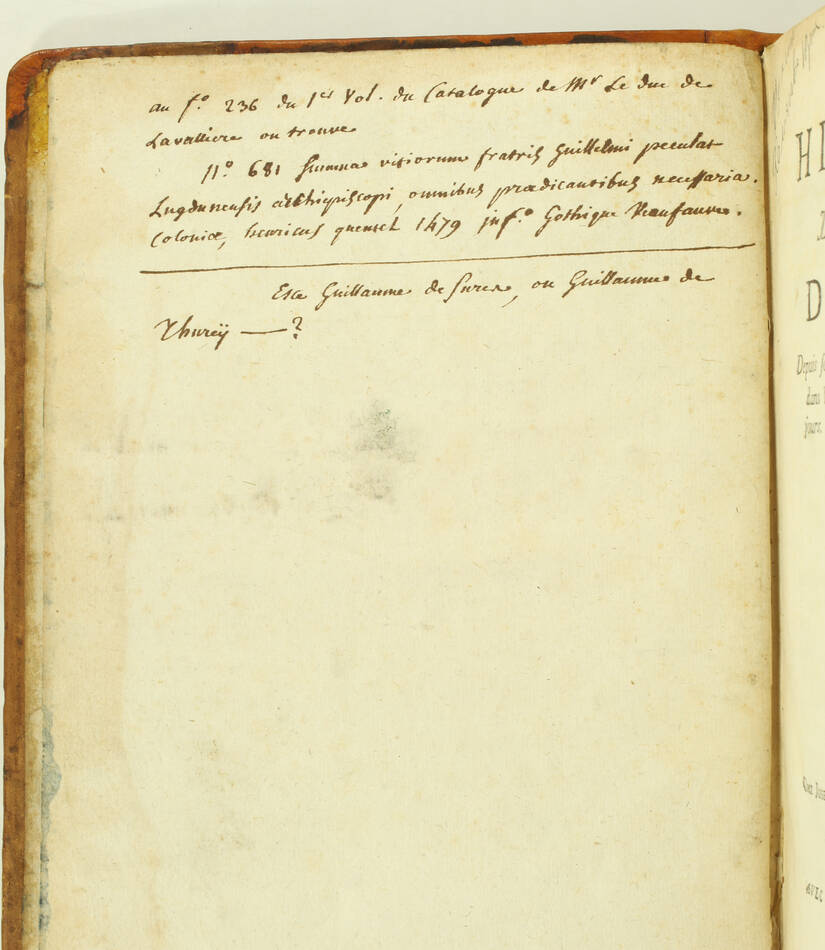 au f.º 236 du 1er Vol. du Catalogue de Mr Le duc de
Lavalliere on trouve
nº 681 Summa vitiorum fratris Guillelmi
Lugdunensis archiepiscopi, omnibus prædicantibus necessaria.
Coloniæ, henricus quentel 1479 in fº Gothique
Est ce Guillaume de Sure, ou Guillaume de
Thureÿ — ?
HI
D
Depuis
dans
jours
Chez
AVEC